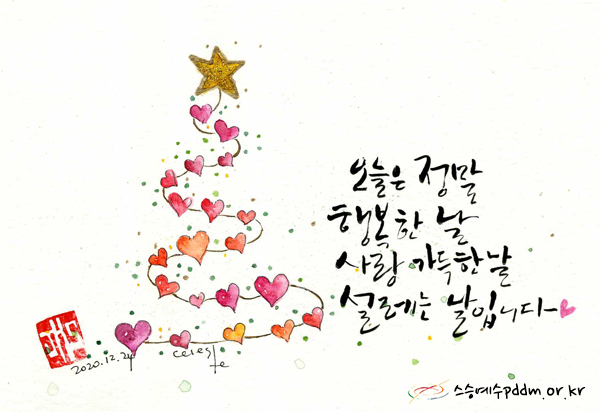 오늘은 정말
행복한 날
사랑 가득한 날
설레는 날입니다~
2020.12.24
celeste
스승예수pddm.or.kr